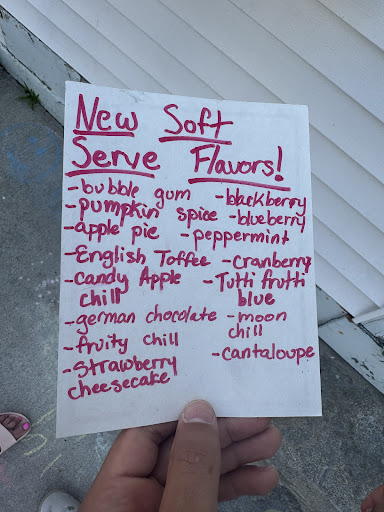 New Soft
Serve Flavors!
-bubble gum
-pumpkin spice
-apple pie
-English Toffee
-Candy Apple
chill
-german chocolate
-fruity chill
-Strawberry
cheesecake
-blackberry
-blueberry
-peppermint
-Cranberry
-Tutti frutti
blue
-moon
chill
-cantaloupe